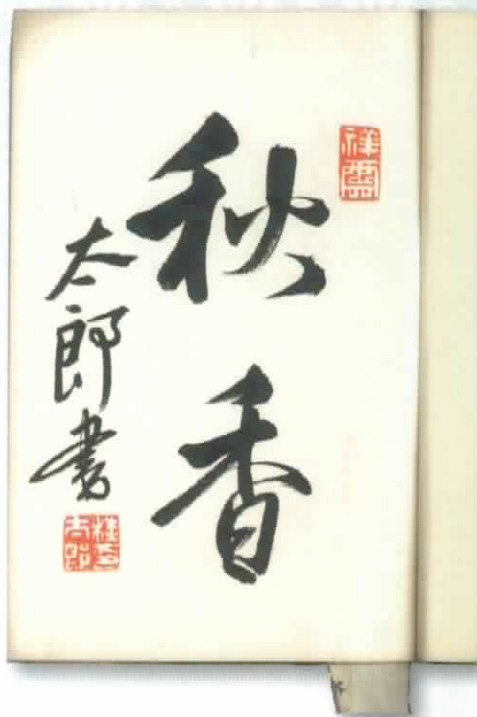 秋香
太郎書